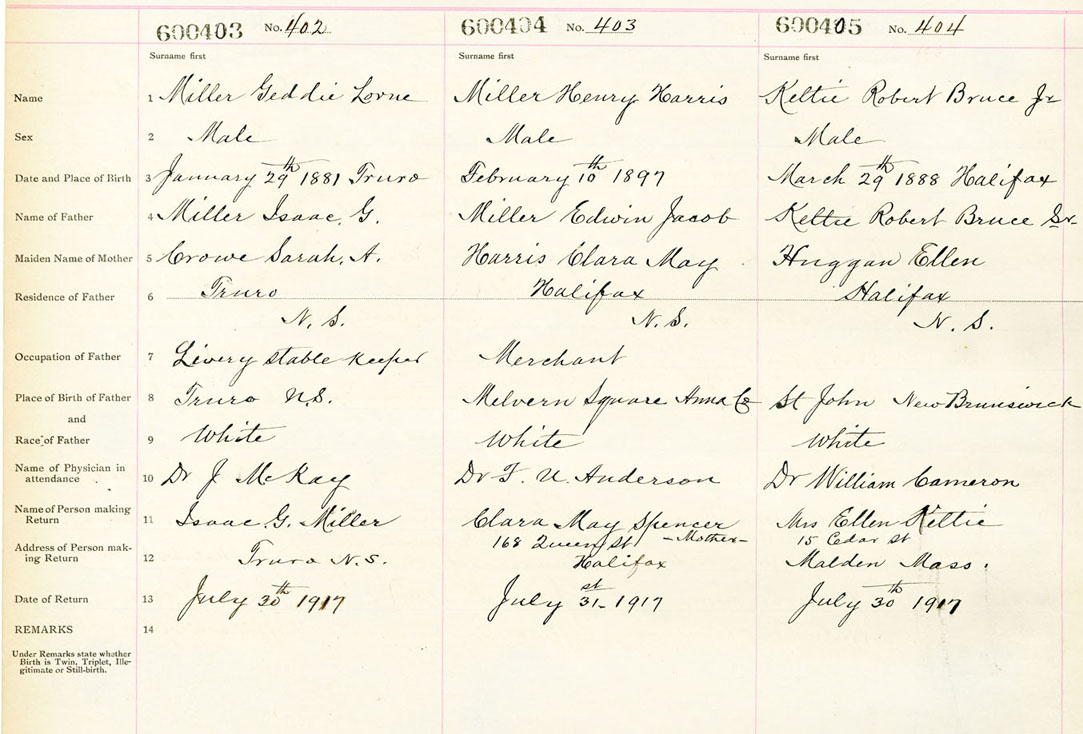 600403 No. 402 600404 No. 403 600405 No. 404
Surname first Surname first Surname first
Name 1 Miller Geddie Lorne Miller Henry Harris Keltie Robert Bruce Jr
Sex 2 Male Male Male
Date and Place of Birth 3 January 29th 1881 Truro February 10th 1897 March 29th 1888 Halifax
Name of Father 4 Miller Isaac G. Miller Edwin Jacob Keltie Robert Bruce Sr.
Maiden Name of Mother 5 Crowe Sarah. A. Harris Clara May Huggan Ellen
Residence of Father 6 Truro Halifax Halifax
N. S. N. S. N. S.
Occupation of Father 7 Livery stable keeper Merchant
Place of Birth of Father 8 Truro N.S. Melvern Square Anna Co St John New Brunswick
and
Race of Father 9 White White White
Name of Physician in
attendance 10 Dr J McKay Dr F. U. Anderson Dr William Cameron
Name of Person making
Return 11 Isaac G. Miller Clara May Spencer Mrs Ellen Keltie
168 Queen St - Mother - 15 Cedar St
Address of Person mak-
ing Return 12 Truro N.S. Halifax Malden Mass.
Date of Return 13 July 30th 1917 July 31st 1917 July 30th 1917
REMARKS 14
Under Remarks state whether
Birth is Twin, Triplet, Ille-
gitimate or Still-birth.